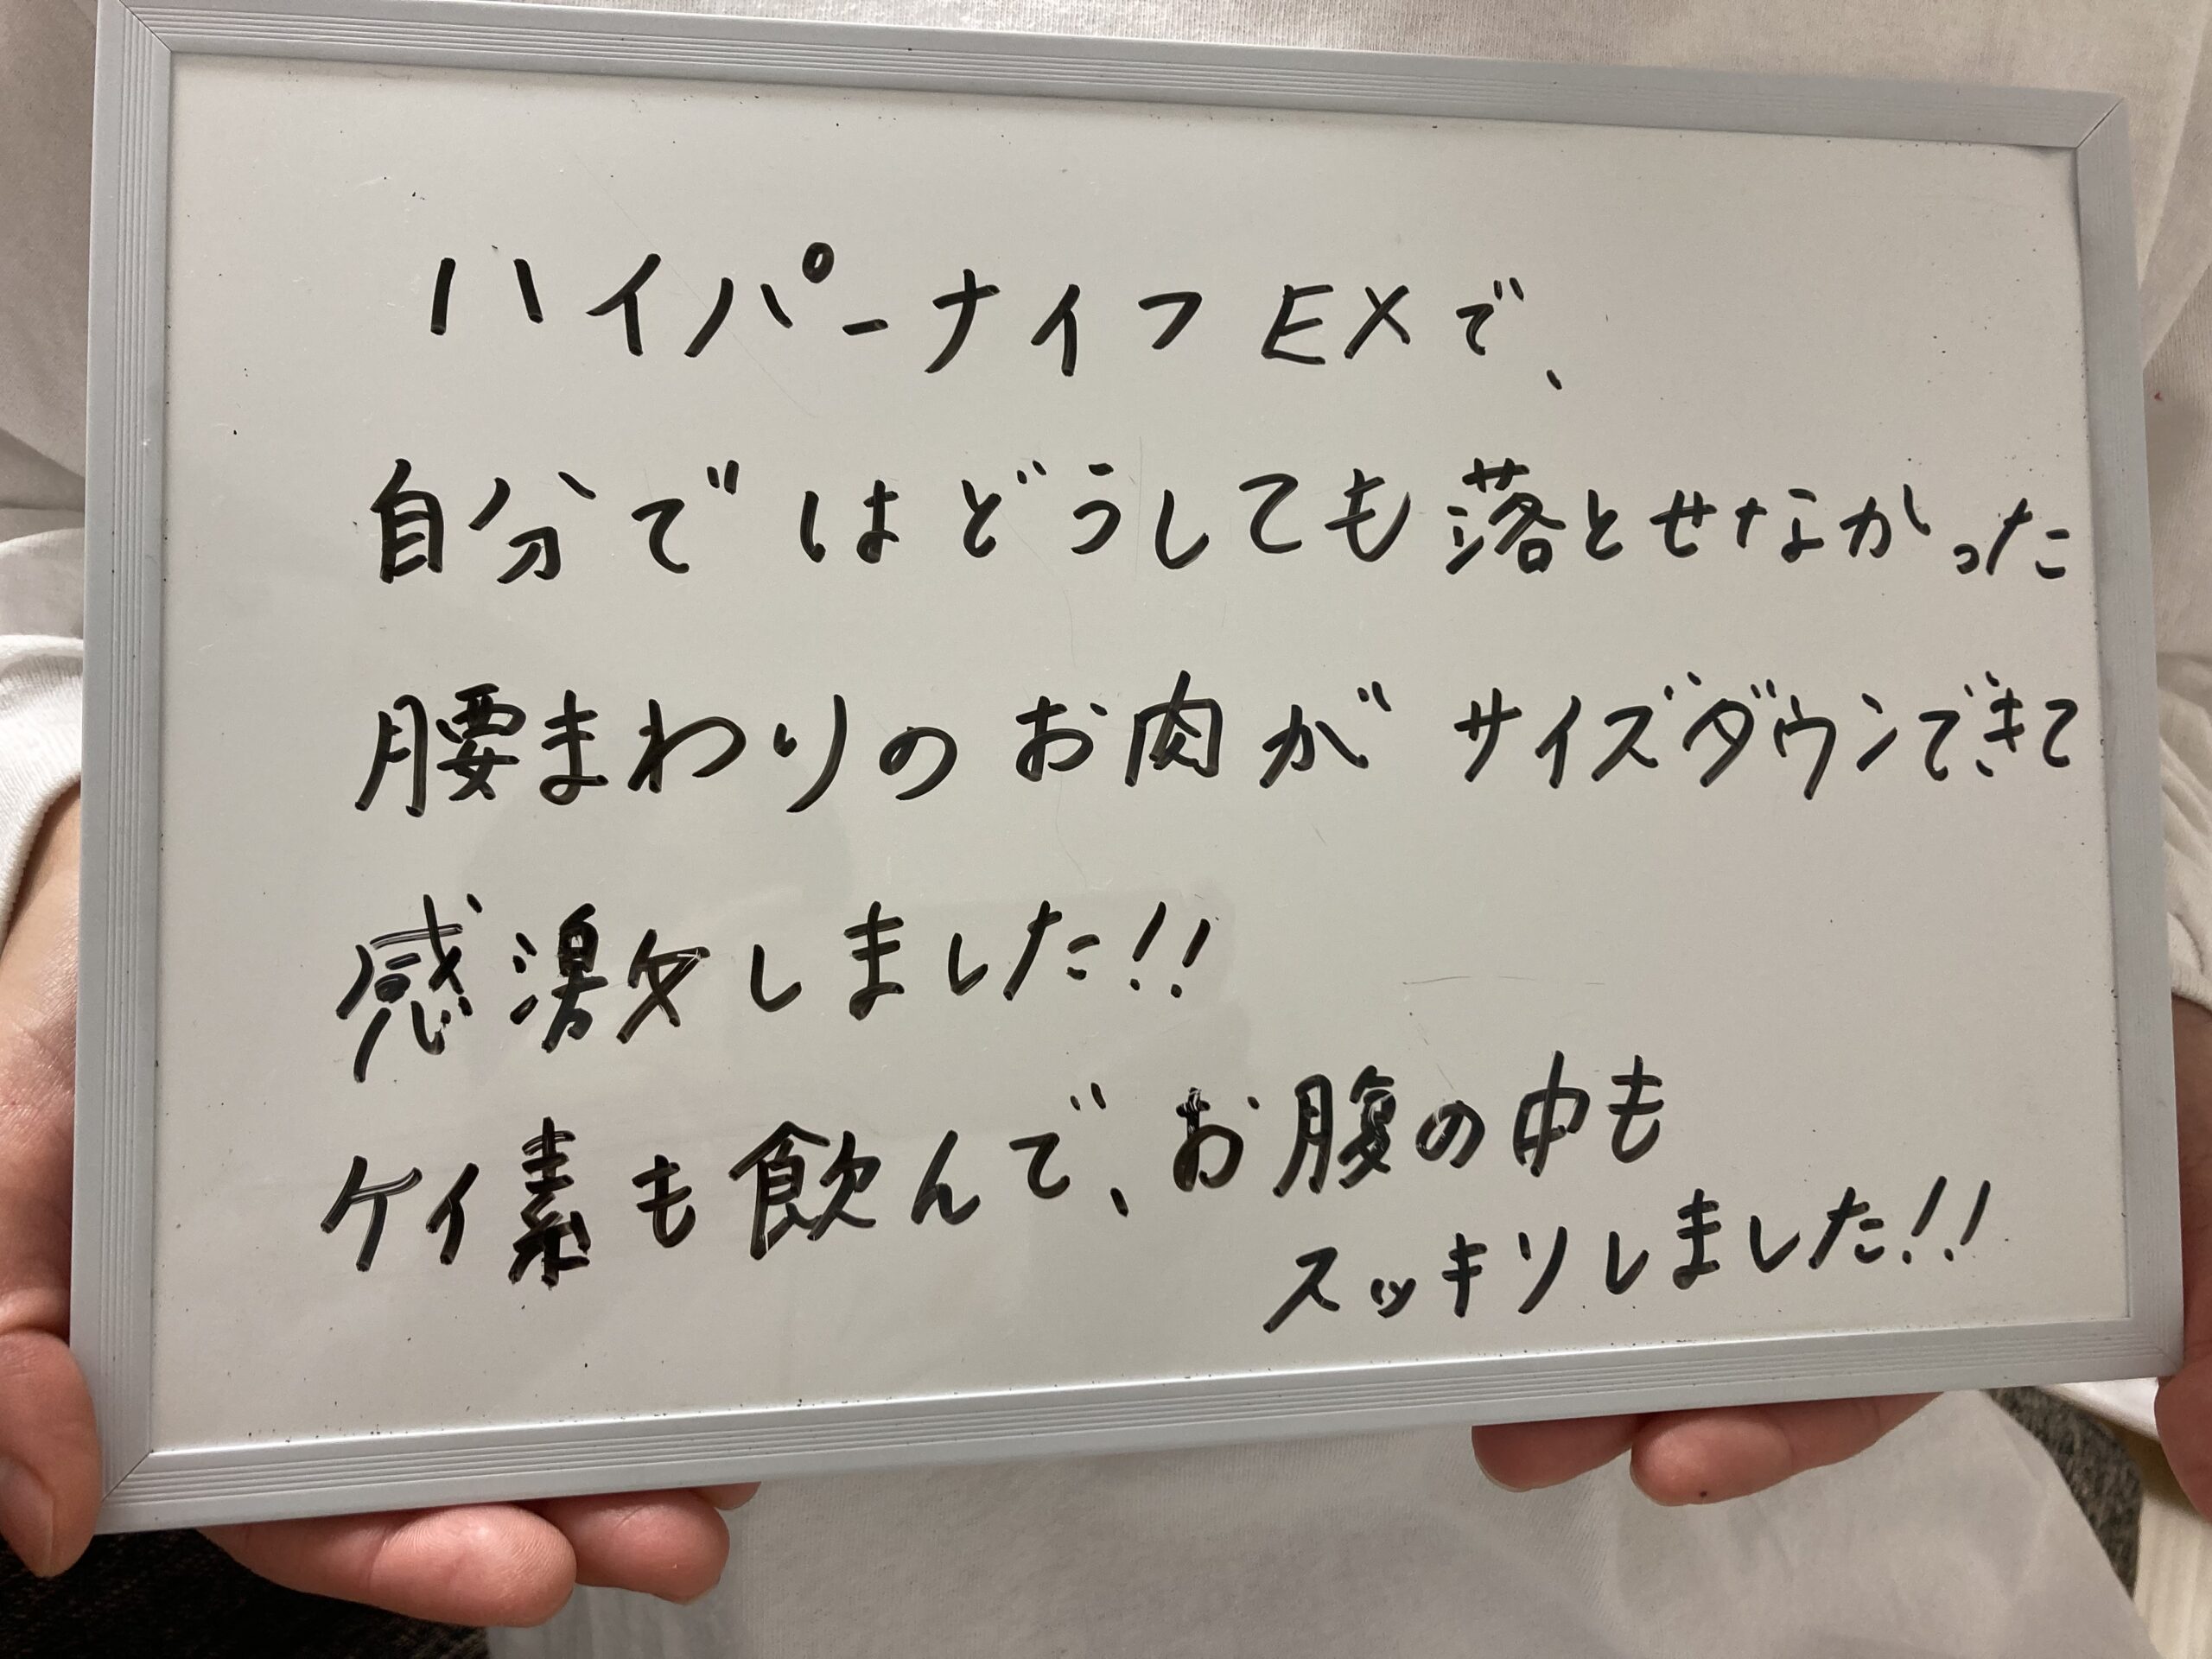 ハイパーナイフEXで、
自分ではどうしても落とせなかった
腰まわりのお肉がサイズダウンできて
感激しました!!
ケイ素も飲んで、お腹の中も
スッキリしました!!